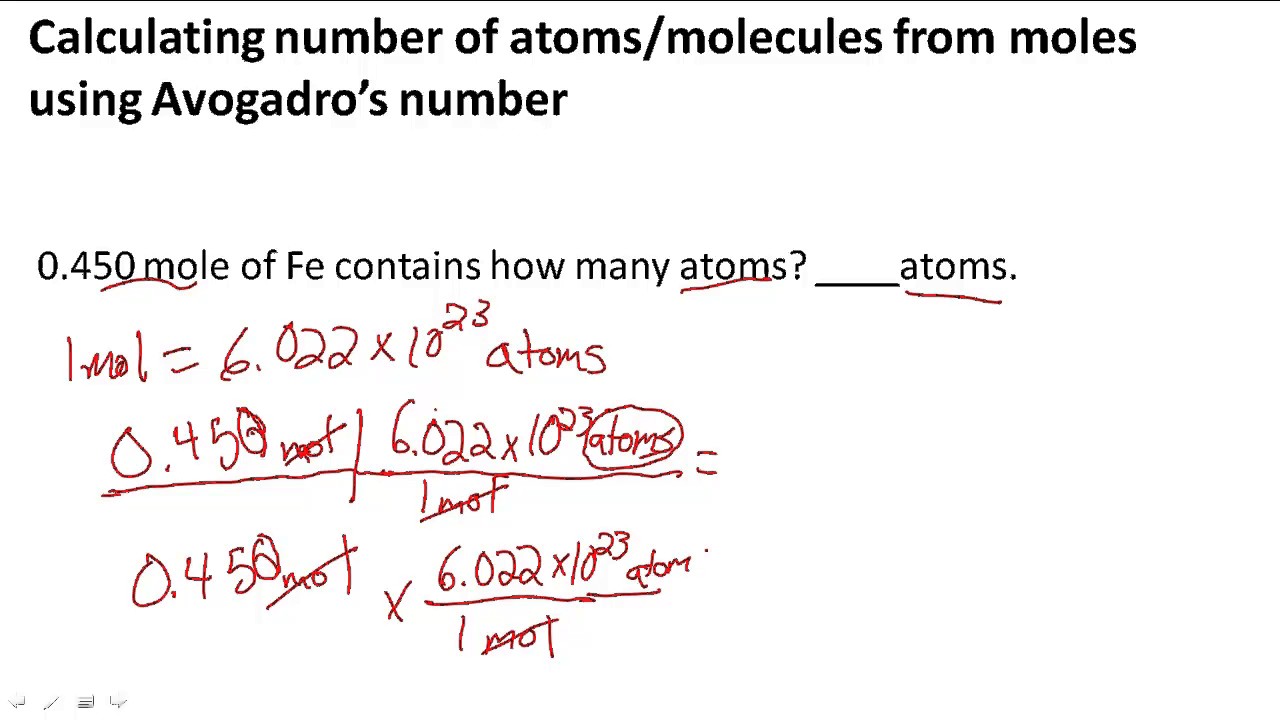 Calculating number of atoms/molecules from moles
using Avogadro’s number
0.450 mole of Fe contains how many atoms? ____atoms.
1mol = 6.022 x 10²³ atoms
0.450 mol | 6.022 x 10²³ atoms =
1 mol
0.450 mol x 6.022 x 10²³ atom
1 mol